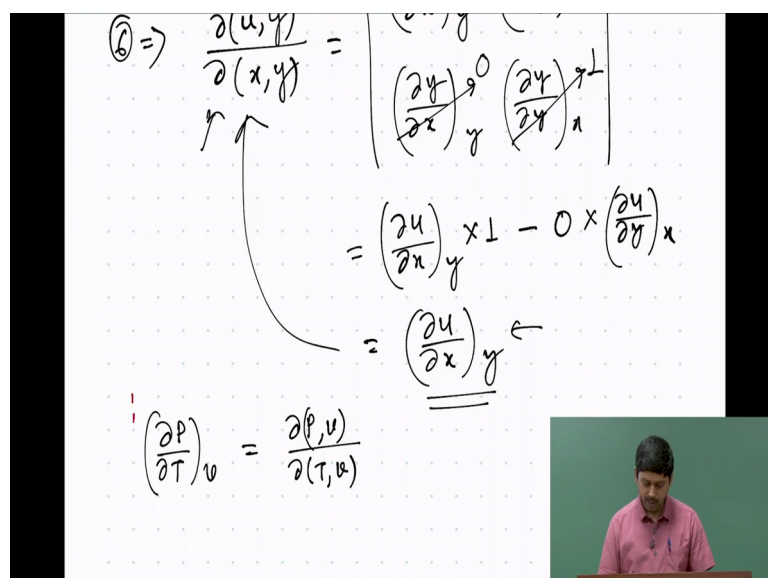 ⑥ ⇒ ∂(u,y)/∂(x,y) = | (∂u/∂x)_y
(∂y/∂x)_y → 0 (∂y/∂y)_x → 1 |
= (∂u/∂x)_y × 1 − 0 × (∂u/∂y)_x
= (∂u/∂x)_y ←
(∂P/∂T)_v = ∂(P,v)/∂(T,v)